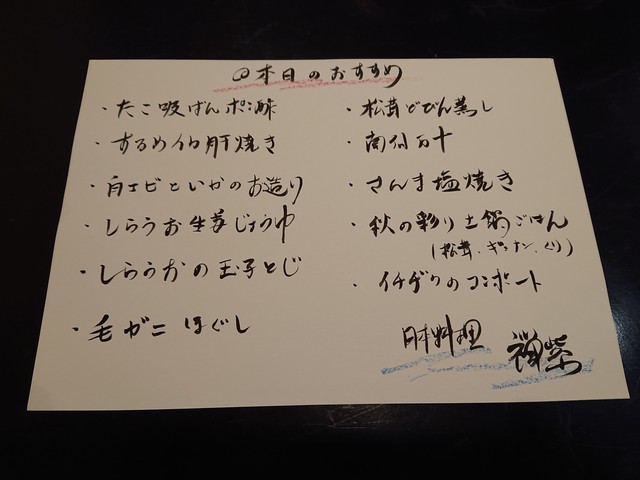 本日のおすすめ
・たこ吸ばんポン酢
・するめイカ肝焼き
・白エビといかのお造り
・しらうお生姜じょうゆ
・しらうおの玉子とじ
・毛ガニほぐし
・松茸どびん蒸し
・さんま塩焼き
・秋の彩り土鍋ごはん
(松茸、ギンナン、くり)
・イチヂクのコンポート
日本料理